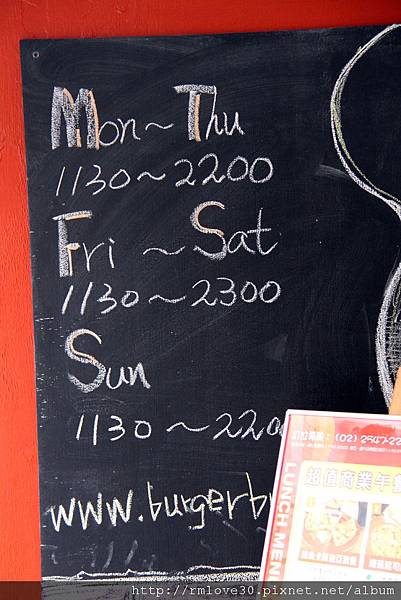 Mon~Thu
1130~2200
Fri ~ Sat
1130~2300
Sun
1130~220
www.burgerbr
(02) 2547-22
超值商業午餐
LUNCH MENU
http://rmlove30.pixnet.net/album